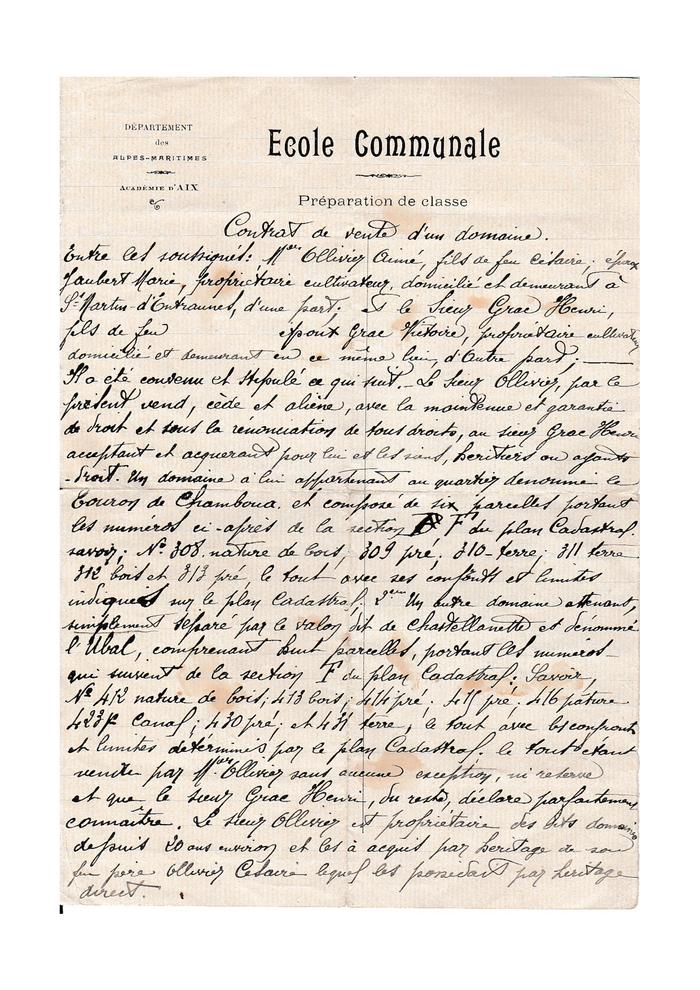 DÉPARTEMENT
des
ALPES-MARITIMES
ACADÉMIE D'AIX
Ecole Communale
Préparation de classe
Contrat de vente d'un domaine.
Entre les soussignés: Ollivier Aimé, fils de feu Césaire; époux
Jaubert Marie, propriétaire cultivateur, domicilié et demeurant à
St Martin d'Entraunes, d'une part; et le Sieur Grac Henri,
fils de feu époux Grac Victoire, propriétaire cultivateur
domicilié et demeurant en ce même lieu, d'Autre part;
Il a été convenu et stipulé ce qui suit. Le Sieur Ollivier, par le
présent vend, cède et aliène, avec la maintenue et garantie
de droit et sous la renonciation de tous droits, au sieur Grac Henri
acceptant et acquerant pour lui et les siens, heritiers ou ayants
-droit. Un domaine à lui appartenant au quartier denommé le
de Chamboua. et composé de six parcelles portant
les numeros ci-après de la section F du plan Cadastral.
savoir; No 308. nature de bois, 309 pré; 310 terre; 311 terre
312 bois et 313 pré, le tout avec ses confronts et limites
indiquées sur le plan Cadastral. Un autre domaine attenant,
simplement séparé par le valon dit de Chastellanette et dénommé
l'Ubal, comprenant huit parcelles, portant les numeros
qui suivent de la section F du plan Cadastral: Savoir,
No 412 nature de bois; 413 bois; 414 pré. 415 pré. 416 pature
423 P Canal; 430 pré; et 431 terre, le tout avec les confronts
et limites déterminés par le plan Cadastral. le tout étant
vendu par Ollivier sans aucune exception, ni reserve
et que le sieur Grac Henri, du reste, déclare parfaitement
connaître. Le Sieur Ollivier est propriétaire des dits domaines
depuis 20 ans environ et les à acquis par heritage de son
feu père Ollivier Césaire lequel les possedait par heritage
direct.